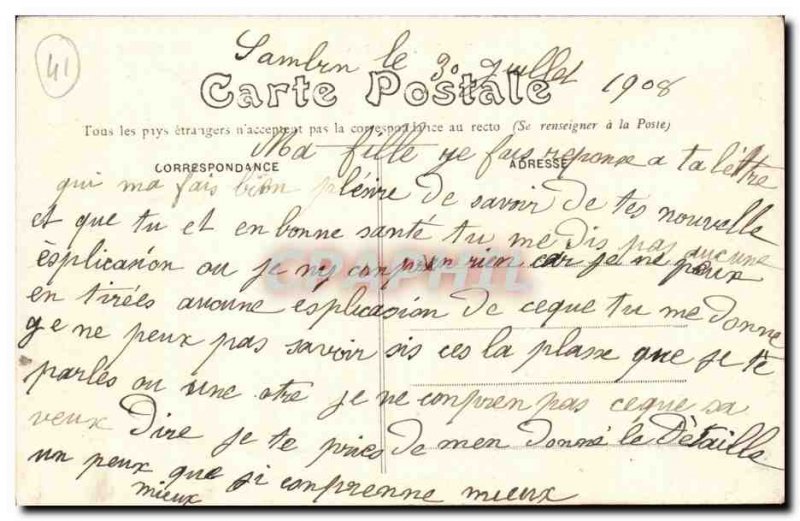 41
Sambin le 30 Juillet 1908
Carte Postale
Tous les pays étrangers n'acceptent pas la correspondance au recto (Se renseigner à la Poste)
Ma fille ge fais reponse a ta lèttre
CORRESPONDANCE
ADRESSE
qui ma fais bien plésire de savoir de tes nouvelle
et que tu et en bonne santé tu me dis pas aucune
èsplicasion ou je ny conpren rien car je ne peux
en tirées aucune esplicasion de ceque tu me donne
ge ne peux pas savoir sis ces la plase que je tè
parles ou une otre je ne conpren pas ceque sa
veux Dire je te pries de men donné le Dètaille
un peux que si conprenne mieux
mieux
CPAPHIL